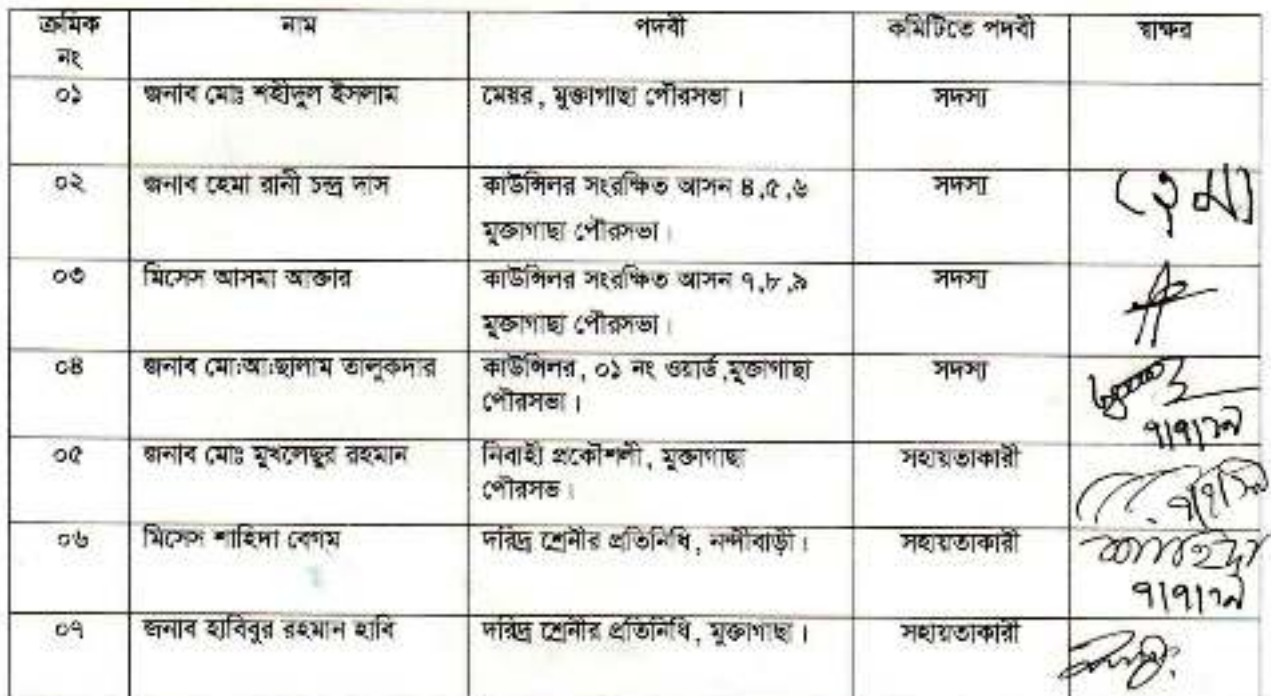 ক্রমিক নং | নাম | পদবী | কমিটিতে পদবী | স্বাক্ষর
০১ | জনাব মোঃ শহীদুল ইসলাম | মেয়র, মুক্তাগাছা পৌরসভা। | সদস্য
০২ | জনাব হেমা রানী চন্দ্র দাস | কাউন্সিলর সংরক্ষিত আসন ৪,৫,৬ | সদস্য | হেমা
মুক্তাগাছা পৌরসভা।
০৩ | মিসেস আসমা আক্তার | কাউন্সিলর সংরক্ষিত আসন ৭,৮,৯ | সদস্য
মুক্তাগাছা পৌরসভা।
০৪ | জনাব মো:আ:ছালাম তালুকদার | কাউন্সিলর, ০১ নং ওয়ার্ড,মুক্তাগাছা | সদস্য
পৌরসভা।
০৫ | জনাব মোঃ মুখলেছুর রহমান | নিবাহী প্রকৌশলী, মুক্তাগাছা | সহায়তাকারী
পৌরসভ।
০৬ | মিসেস শাহিদা বেগম | দরিদ্র শ্রেনীর প্রতিনিধি, নন্দীবাড়ী। | সহায়তাকারী | শাহিদা
০৭ | জনাব হাবিবুর রহমান হাবি | দরিদ্র শ্রেনীর প্রতিনিধি, মুক্তাগাছা। | সহায়তাকারী